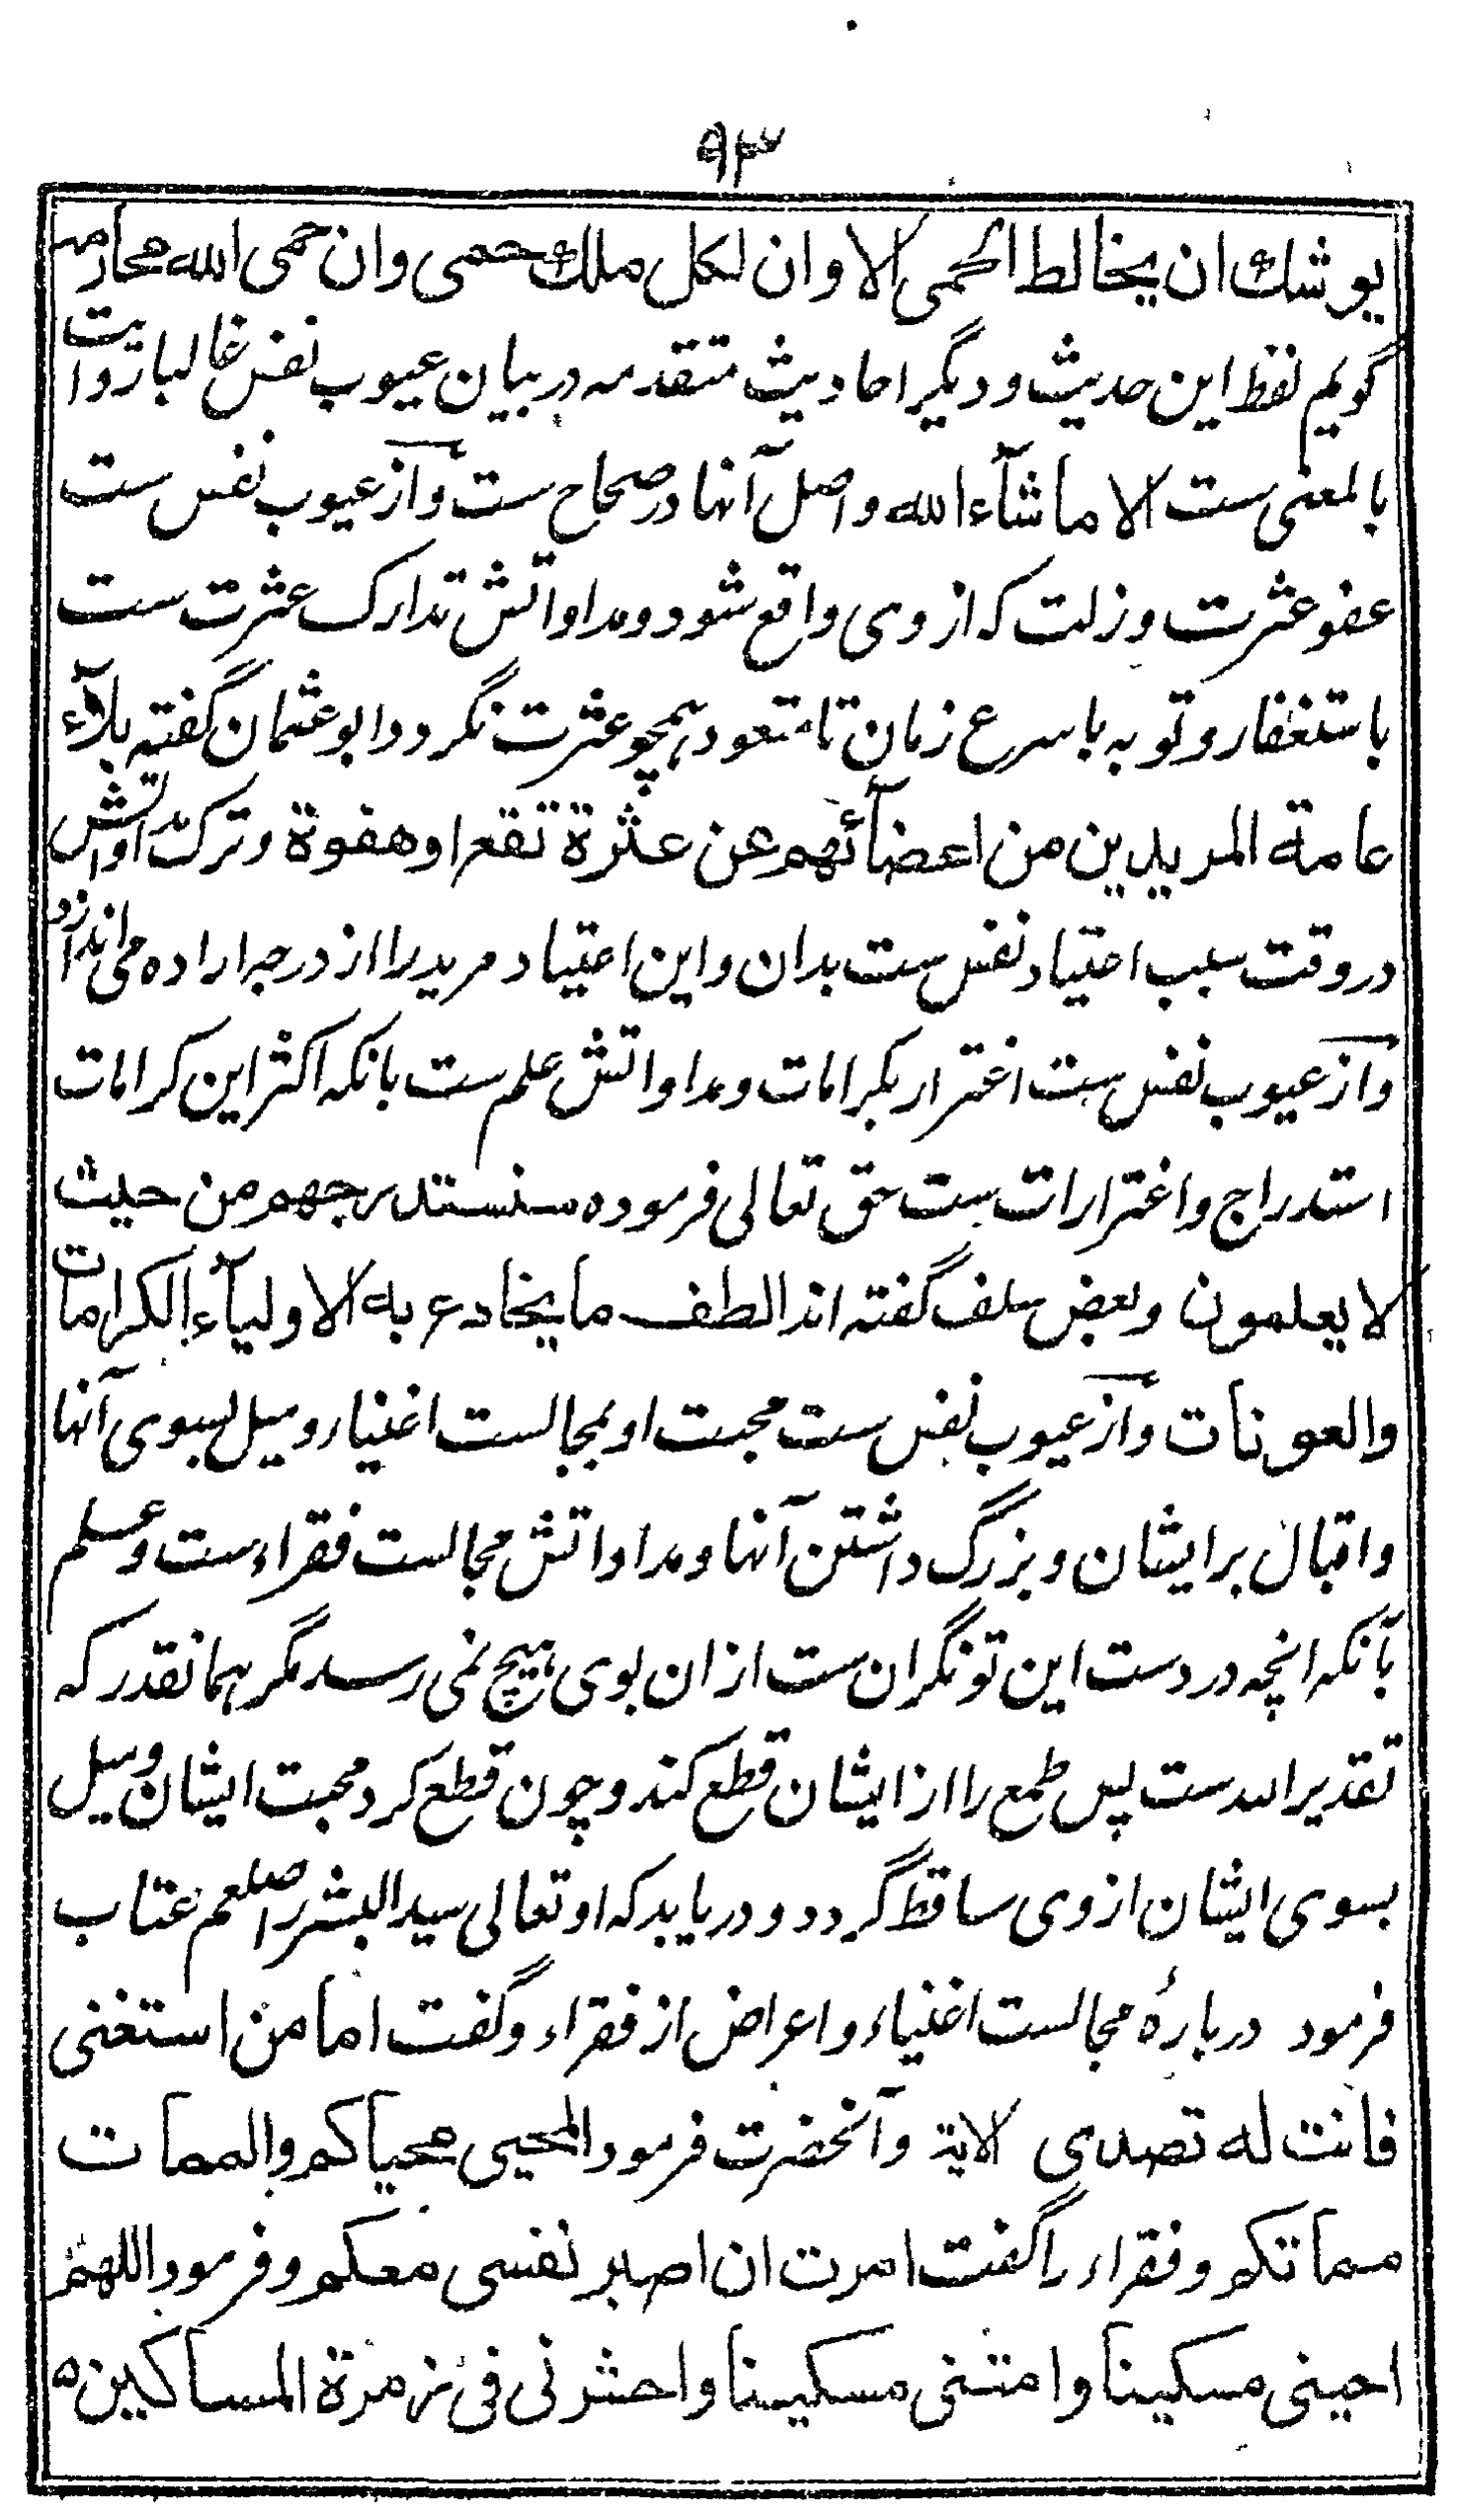 ۹۳
یوشك ان یخالط الحمی الا وان لکل ملك حمی وان حمی الله محارمه
گویم لفظ این حدیث و دیگر احادیث متقدمه در بیان عیوب نفس غالبا روایت
بالمعنی ست الا ما شآء الله و اصل آنها در صحاح ست و از عیوب نفس ست
عفو عثرت و زلت که از وی واقع شود و مداواتش تدارک عثرت ست
باستغفار و توبه باسرع زمان تا متعود بهمچو عثرت نگردد ابو عثمان گفته بلآء
عامة المریدین من اعضآئهم عن عثرة تقع او هفوة و ترک مداواتش
در وقت سبب اعتیاد نفس ست بدان و این اعتیاد مرید را از درجه اراده می اندازد
و از عیوب نفس ست اغترار بکرامات و مداواتش علم ست بانکه اکثر این کرامات
استدراج و اغترارات ست حق تعالی فرموده سنستدرجهم من حیث
لا یعلمون و بعض سلف گفته اند الطف ما یخادع به الاولیآء الکرامات
والعونات و از عیوب نفس ست محبت او بمجالست اغنیاء و میل بسوی آنها
و اقبال بر ایشان و بزرگ داشتن آنها و مداواتش مجالست فقراء ست و علم
بآنکه انچه در دست این تونگران ست ازان بوی هیچ نمی رسد مگر همانقدر که
تقدیر الله ست پس طمع را از ایشان قطع کند و چون قطع کرد محبت ایشان و میل
بسوی ایشان از وی ساقط گردد و دریابد که او تعالی سید البشر را صلعم عتاب
فرمود دربارهٔ مجالست اغنیاء و اعراض از فقراء و گفت اما من استغنی
فانت له تصدی الایة و آنحضرت فرمود المحیی محیاکم والممات
مماتکم و فقراء را گفت امرت ان اصبر نفسی معکم و فرمود اللهم
احینی مسکینا وامتنی مسکینا واحشرنی فی زمرة المساکین ه